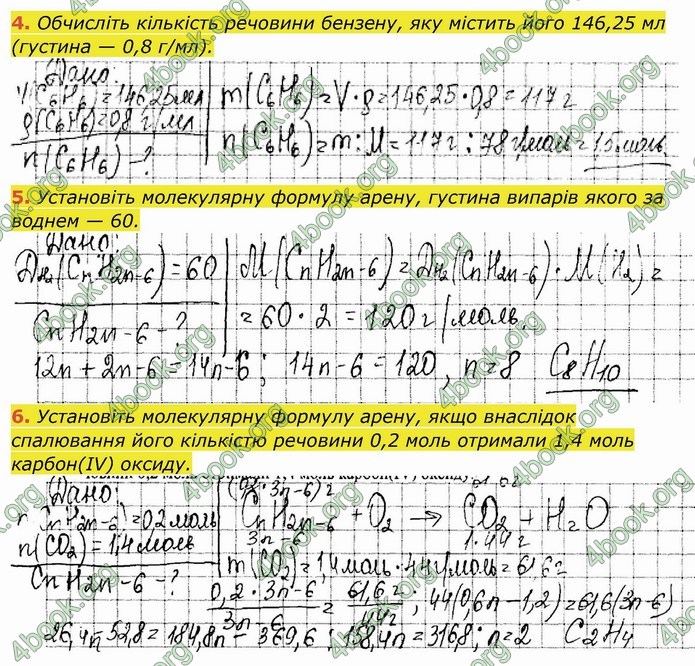 4. Обчисліть кількість речовини бензену, яку містить його 146,25 мл
(густина — 0,8 г/мл).
Дано:
V(C₆H₆)=146,25мл
ρ(C₆H₆)=0,8 г/мл
n(C₆H₆) - ?
m(C₆H₆)=V·ρ=146,25·0,8=117 г
n(C₆H₆)=m:M=117г:78г/моль=1,5моль.
5. Установіть молекулярну формулу арену, густина випарів якого за
воднем — 60.
Дано:
Dн₂(CnH2n-6)=60
CnH2n-6 - ?
M(CnH2n-6)=Dн₂(CnH2n-6)·M(H₂)=
=60·2=120г/моль.
12n+2n-6=14n-6; 14n-6=120, n=8 C₈H₁₀
6. Установіть молекулярну формулу арену, якщо внаслідок
спалювання його кількістю речовини 0,2 моль отримали 1,4 моль
карбон(IV) оксиду.
Дано:
n(CnH2n-6)=0,2моль
n(CO₂)=1,4моль
CnH2n-6 - ?
(0,2·3n-6)г 61,6г
CnH2n-6 + O₂ → CO₂ + H₂O
3n-6 1·44г
m(CO₂)=1,4моль·44г/моль=61,6г
0,2·3n-6 = 61,6г; 44(0,6n-1,2)=61,6(3n-6)
3n-6 44г
26,4n-52,8=184,8n-369,6; 158,4n=316,8; n=2 C₂H₄
4book.org